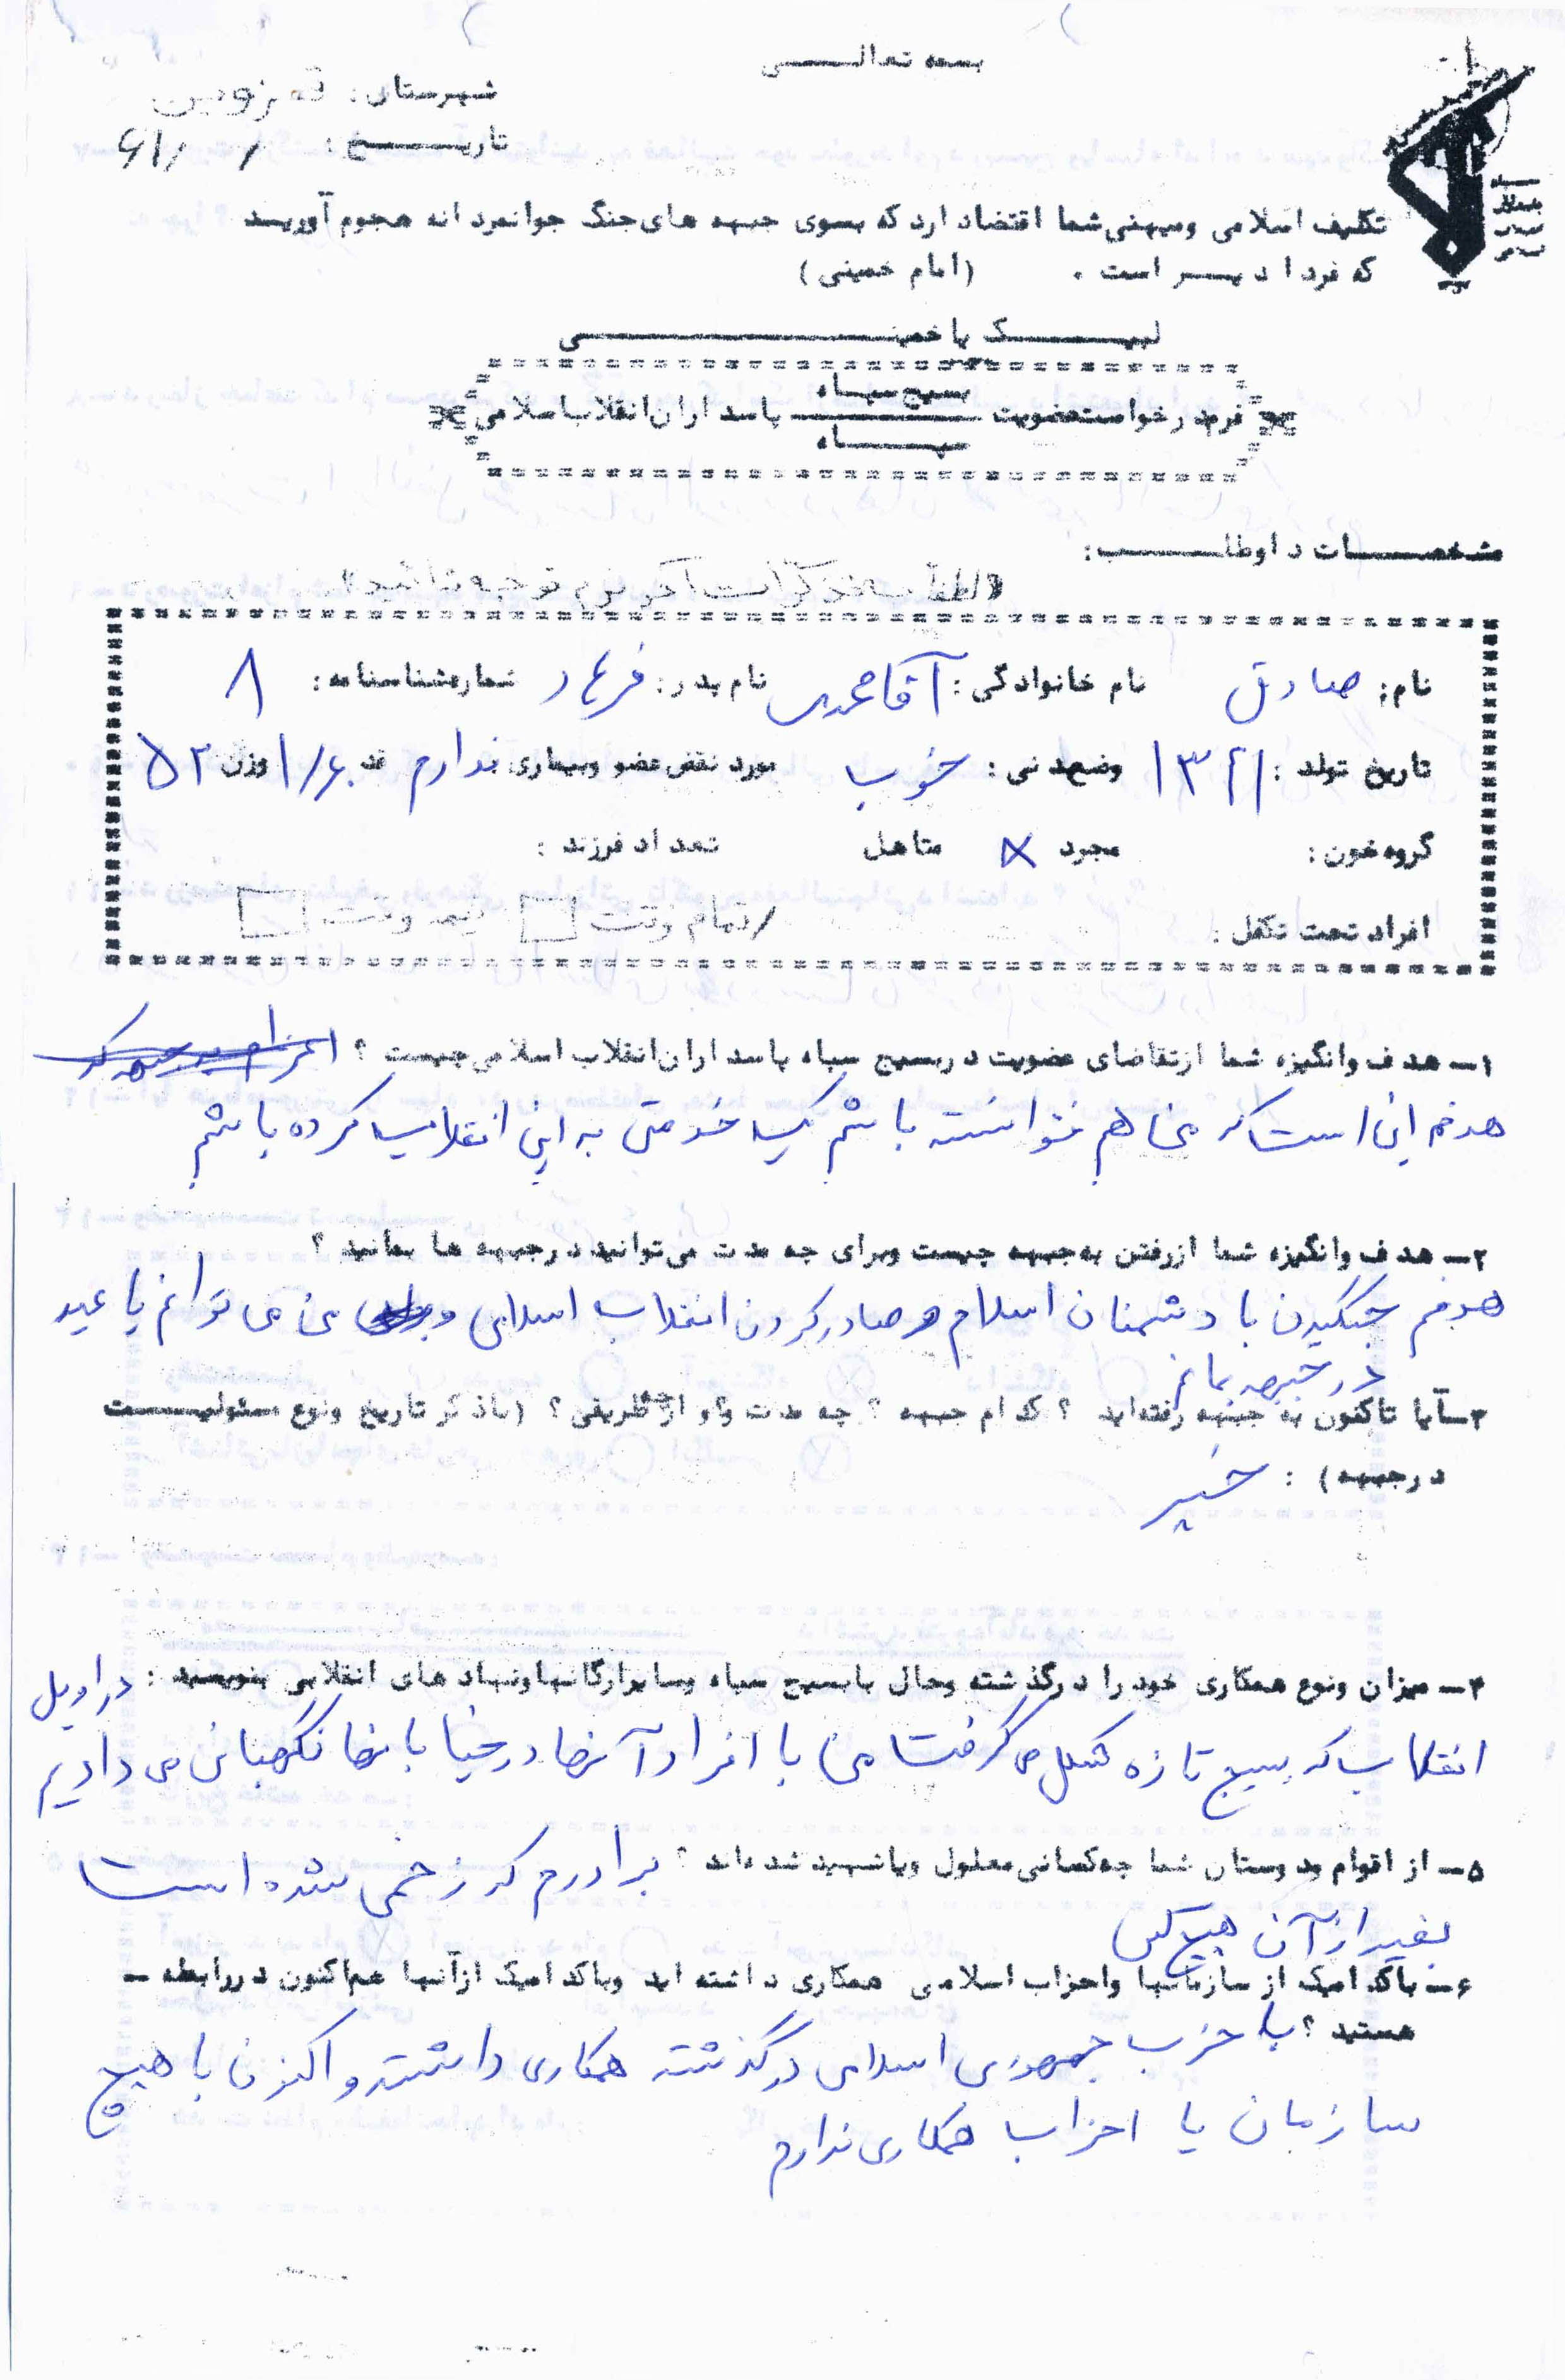 بسمه تعالی
شهرستان: قزوین
تاریخ: / /۶۱
تکلیف اسلامی ومیهنی شما اقتضا دارد که بسوی جبهه های جنگ جوانمرد انه هجوم آورید
که فرد ا د یر است . (امام خمینی)
لبیک یا خمینی
بسیج سپاه
فرم د رخواست عضویت پاسد اران انقلاب اسلامی
سپاه
مشخصات د اوطلب:
لطفا به تذکرات آخر فرم توجه نمائید
نام: صادق نام خانوادگی: آقامحمدی نام پدر: فرهاد شماره شناسنامه: ۸
تاریخ تولد: ۱۳۴۱ وضع بدنی: خوب مورد نقص عضو وبیماری ندارم قد ۱/۶۰ وزن ۵۲
گروه خون: مجرد × متاهل تعداد فرزند :
افراد تحت تکفل: تمام وقت نیمه وقت
۱ــ هد ف وانگیزه شما ازتقاضای عضویت د ربسیج سپاه پاسد اران انقلاب اسلامی چیست ؟
هدفم این است که من هم توانسته باشم یک خدمتی به این انقلاب کرده باشم
۲ــ هد ف وانگیزه شما ازرفتن به جبهه چیست وبرای چه مد ت می توانید د رجبهه ها بمانید ؟
هدفم جنگیدن با دشمنان اسلام و صادر کردن انقلاب اسلامی و من می توانم تا عید
در جبهه بمانم
۳ــ آیا تاکنون به جبهه رفته اید ؟ کد ام جبهه ؟ چه مد ت واز چه طریقی ؟ (باذ کر تاریخ ونوع مسئولیت
د رجبهه) : خیر
۴ــ میزان ونوع همکاری خود را د رگذ شته وحال با بسیج سپاه وسایر ارگانها ونهاد های انقلابی بنویسید : در اویل
انقلاب که بسیج تازه شکل می گرفت من با افراد آنها در خیابانها نگهبانی می دادیم
۵ــ از اقوام ود وستان شما چه کسانی معلول ویا شهید شده اند ؟ برادرم که زخمی شده است
بغیر از آن هیچ کس
۶ــ باکد امیک از سازمانها واحزاب اسلامی همکاری د اشته اید وباکد امیک ازآنها هم اکنون د ررابطه ــ
هستید ؟ با حزب جمهوری اسلامی در گذشته همکاری داشته و اکنون با هیچ
سازمان یا احزاب همکاری ندارم